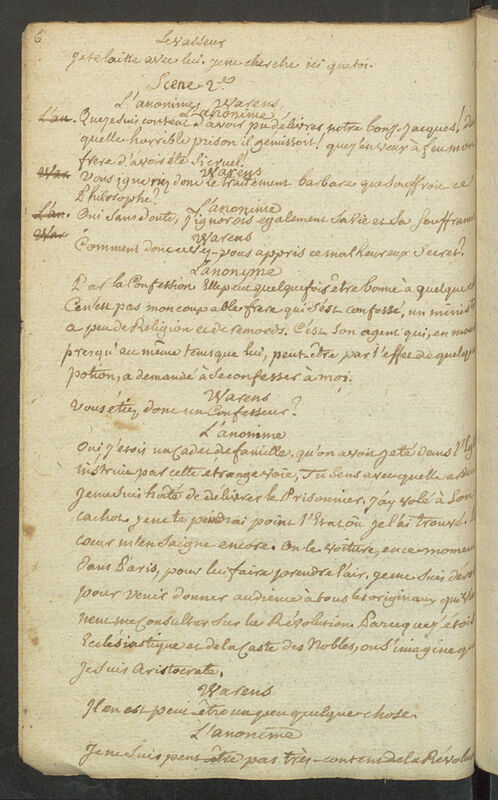 6
Levasseur
Je te laisse avec lui. Je ne cherche ici que toi.
Scene 2e
L'anonime, Warens,
L'anonime
L'an. Que je suis content d'avoir pu délivrer notre bon J. Jacques!
quelle horrible prison il gemissoit! que j'en veux à feu mon
frere d'avoir été si cruel!
Warens
War. Vous ignoriez donc le traitement barbare que souffroit ce
Philosophe?
L'anonime
L'an. Oui sans doute, j'ignorois également sa vie et sa souffrance
Warens
War
Comment donc avez-vous appris ce malheureux secret?
L'anonyme
Par la Confession. Elle peut quelquefois être bonne à quelque
Ce n'est pas mon coupable frere qui s'est confessé, un ministre
a peu de Religion et de remords. C'est son agent qui, en
presqu'au même tems que lui, peut-être par l'effet de quelque
potion, a demandé à se confesser à moi.
Warens
Vous étiez donc un Confesseur?
L'anonime
Oui j'étois un Cadet de famille, qu'on avoit jeté dans l'
instruit par cette étrange voie, Tu sens avec quelle
je me suis hâté de délivrer le Prisonnier. J'ay volé à son
cachot, je ne te peindrai point l'Etat où je l'ai trouvé.
coeur m'en saigne encore. On le voiture, en ce moment
dans Paris, pour lui faire prendre l'air. Je me suis
pour venir donner audience à tous les originaux qui
nent me Consulter sur la Révolution. Parceque j'étois
Ecclésiastique et de la Caste des Nobles, on s'imagine que
je suis Aristocrate.
Warens
Il en est peut-être un peu quelque chose.
L'anonime
Je ne suis peut-être pas très-content de la Révolut